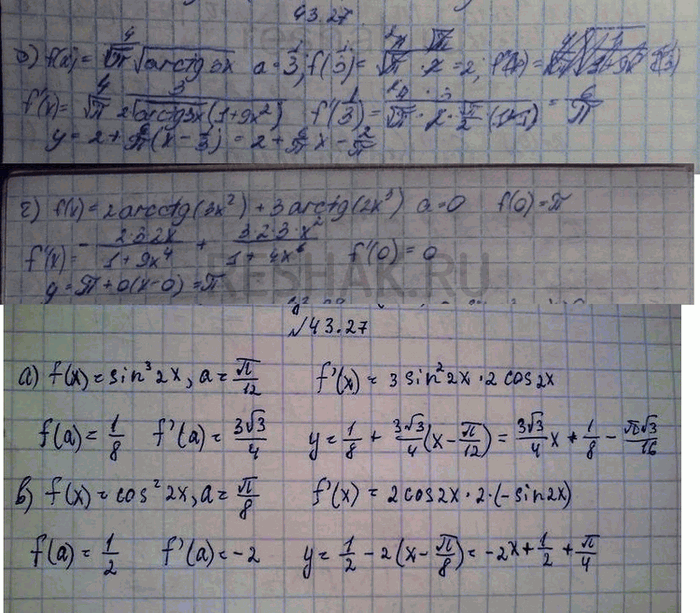 43.27
б) f(x) = 4/√π √arctg 3x a = 1/3; f(1/3) = 4·√π/√π·2 = 2;
f'(x) = 4·3/√π 2√arctg3x (1+9x²) f'(1/3) = 4·3/√π·2·√π/2 (1+1) = 6/π
y = 2 + 6/π (x - 1/3) = 2 + 6/π x - 2/π
г) f(x) = 2 arcctg(3x²) + 3 arctg(2x³) a=0 f(0) = π
f'(x) = - 2·3·2x/1+9x⁴ + 3·2·3·x²/1+4x⁶ f'(0) = 0
y = π + 0(x-0) = π
RESHAK.RU
№43.27
а) f(x) = sin³2x, a = π/12 f'(x) = 3 sin²2x · 2 cos2x
f(a) = 1/8 f'(a) = 3√3/4 y = 1/8 + 3√3/4 (x - π/12) = 3√3/4 x + 1/8 - π√3/16
в) f(x) = cos²2x, a = π/8 f'(x) = 2cos2x·2·(-sin2x)
f(a) = 1/2 f'(a) = -2 y = 1/2 - 2(x - π/8) = -2x + 1/2 + π/4